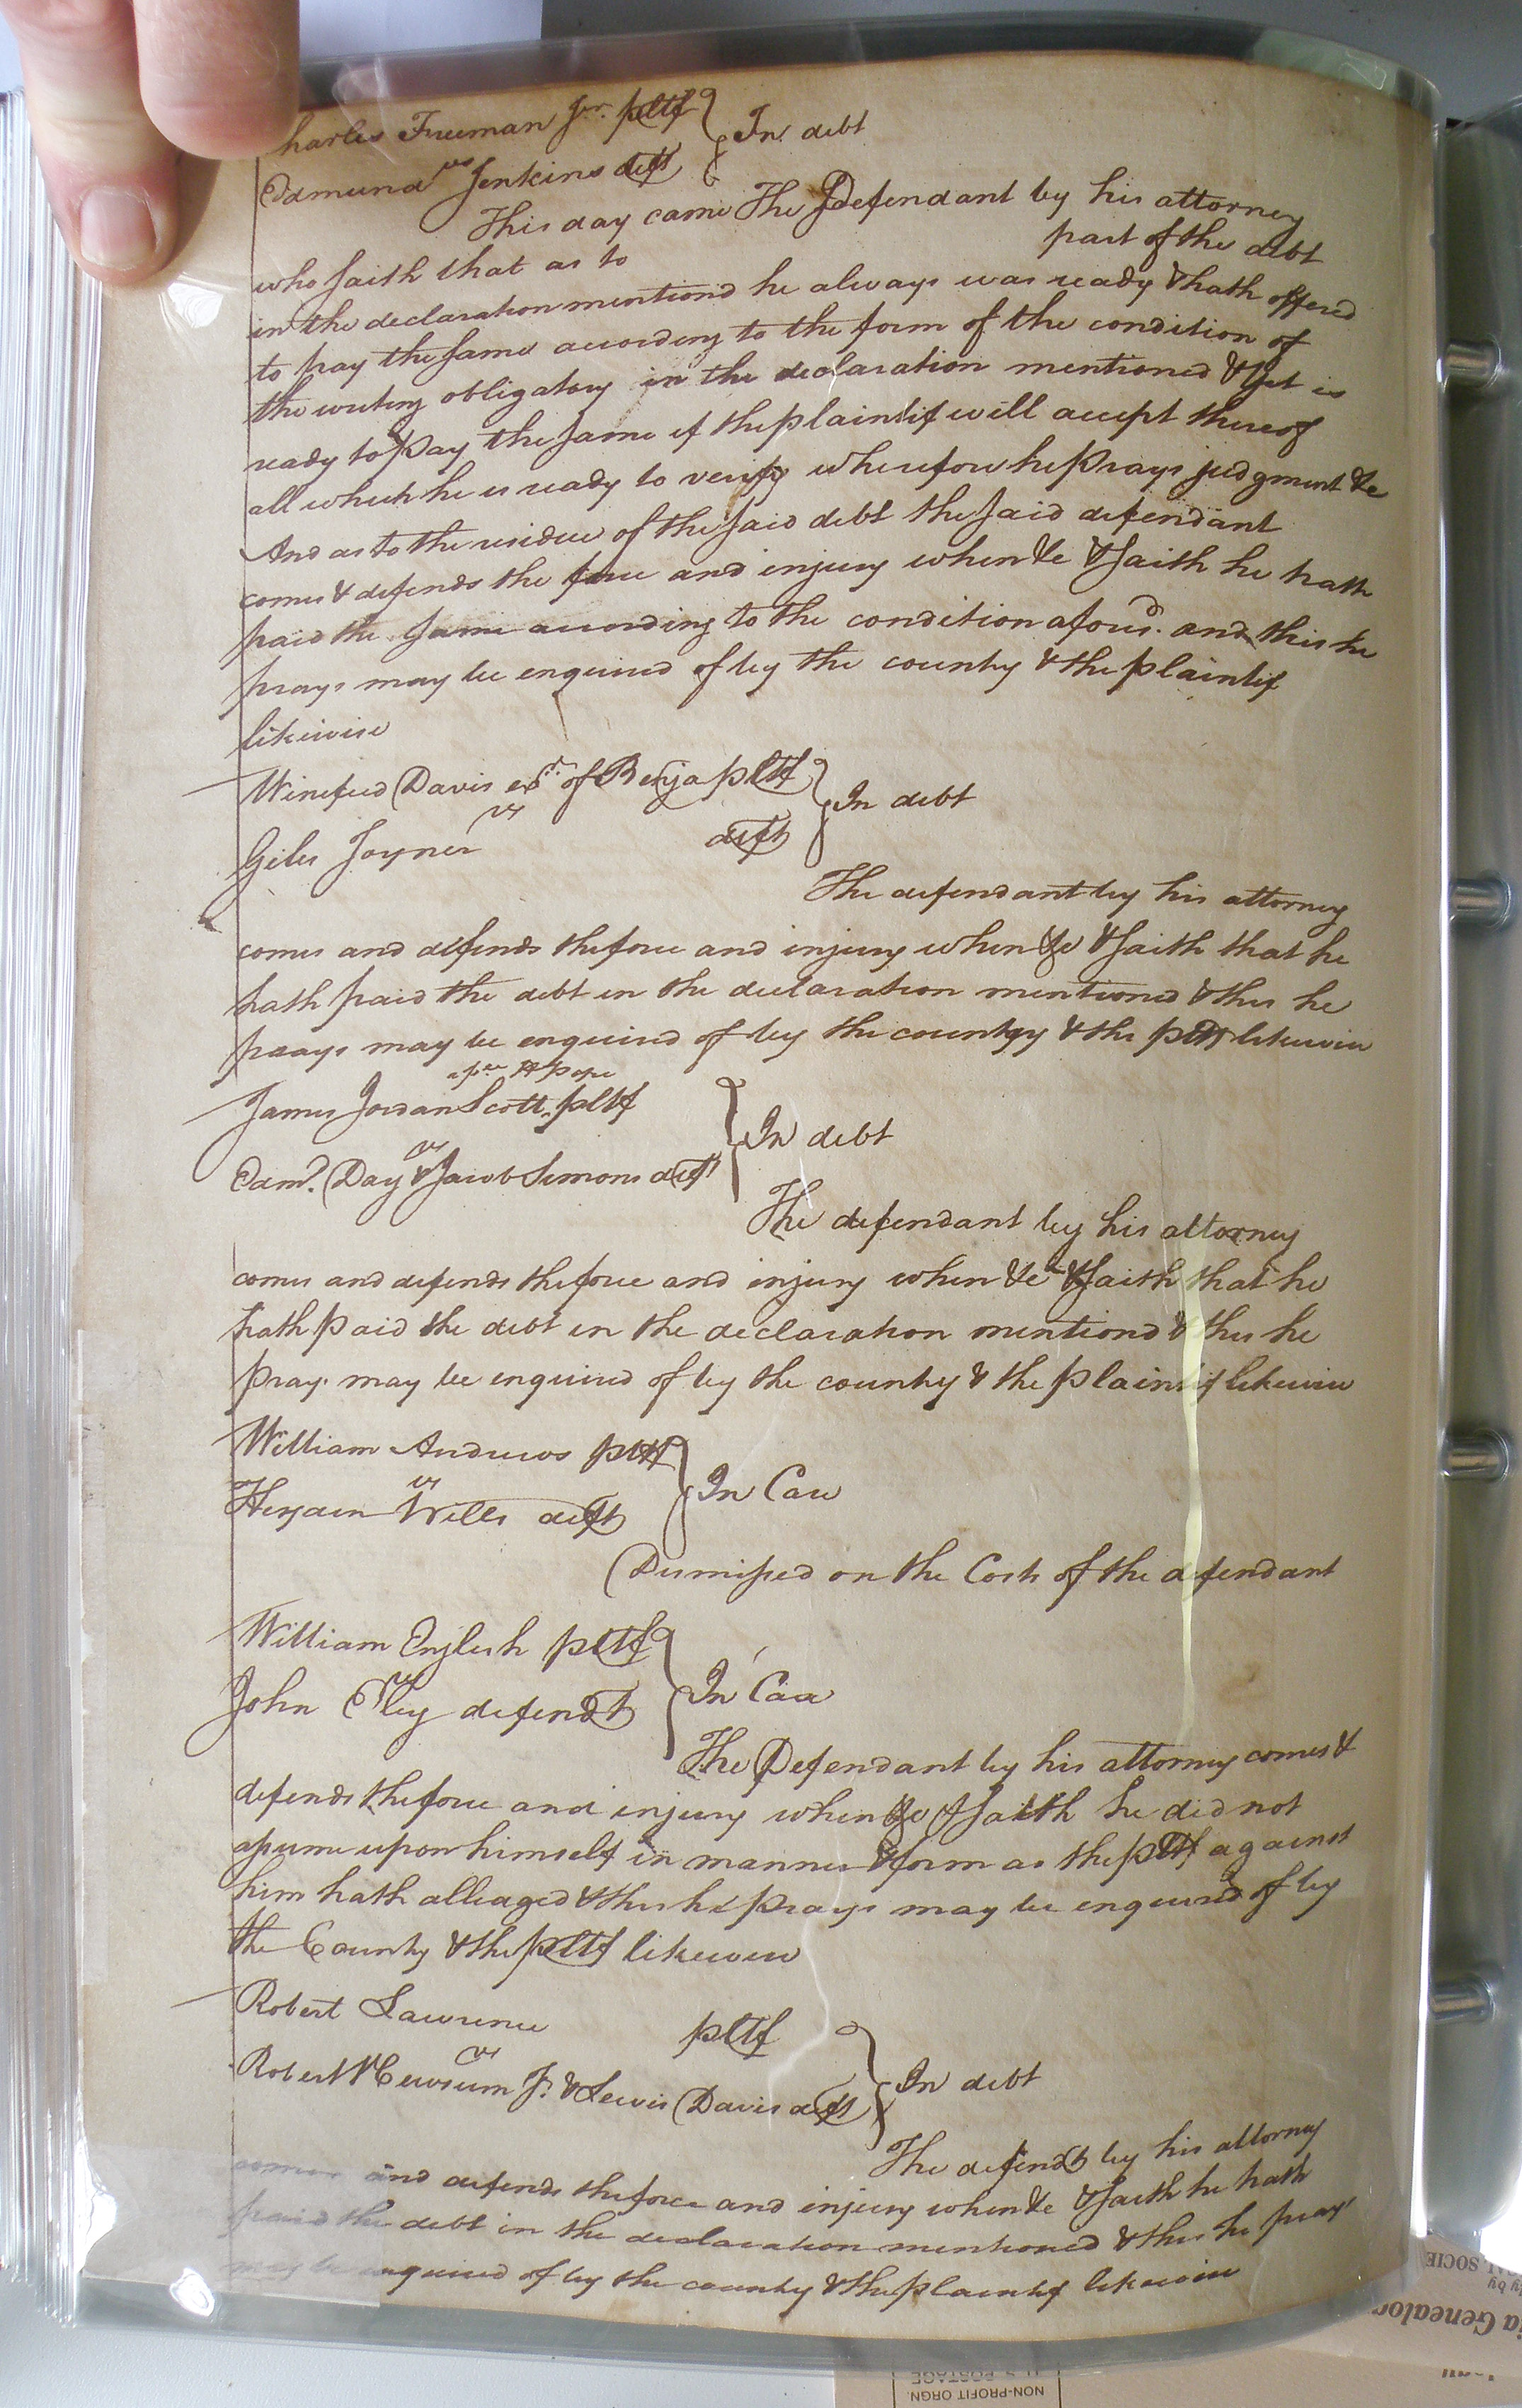 harles Freeman Jr. pltf } In debt
vs
Edmund Jenkins deft
This day came The Defendant by his attorney
who saith that as to part of the debt
in the declaration mentiond he always was ready & hath offered
to pay the same according to the form of the condition of
the writing obligatory in the declaration mentioned & yet is
ready to pay the same if the plaintif will accept thereof
all which he is ready to verify wherefore he prays judgment &c
And as to the residue of the said debt the said defendant
comes & defends the force and injury when &c & saith he hath
paid the same according to the condition afores.d and this he
prays may be enquired of by the country & the plaintif
likewise
Winefred Davis exr. of Benja pltf } In debt
vs
Giles Joyner deft
The defendant by his attorney
comes and defends the force and injury when &c & saith that he
hath paid the debt in the declaration mentioned & this he
prays may be enquired of by the country & the pltf likewise
James Jordan Scott pltf } In debt
vs
Edmd. Day & Jacob Simons deft
The defendant by his attorney
comes and defends the force and injury when &c & saith that he
hath paid the debt in the declaration mentiond & this he
pray. may be enquired of by the country & the plaintif likewise
William Andrews pltf } In Case
vs
Wills deft
Dismissed on the Costs of the defendant
William English pltf } In Case
vs
John Eley defendt
The Defendant by his attorney comes &
defends the force and injury when &c & saith he did not
assume upon himself in manner & form as the pltf against
him hath alleaged & this he prays may be enquired of by
the Country & the pltf likewise
Robert Lawrence pltf } In debt
vs
Robert Newsum Jr. & Lewis Davis deft
The defendt by his attorney
comes and defends the force and injury when &c & saith he hath
paid the debt in the declaration mentioned & this he pray
may be enquired of by the country & the plaintif likewise
NON-PROFIT ORGN
U S POSTAGE
ia Genealog